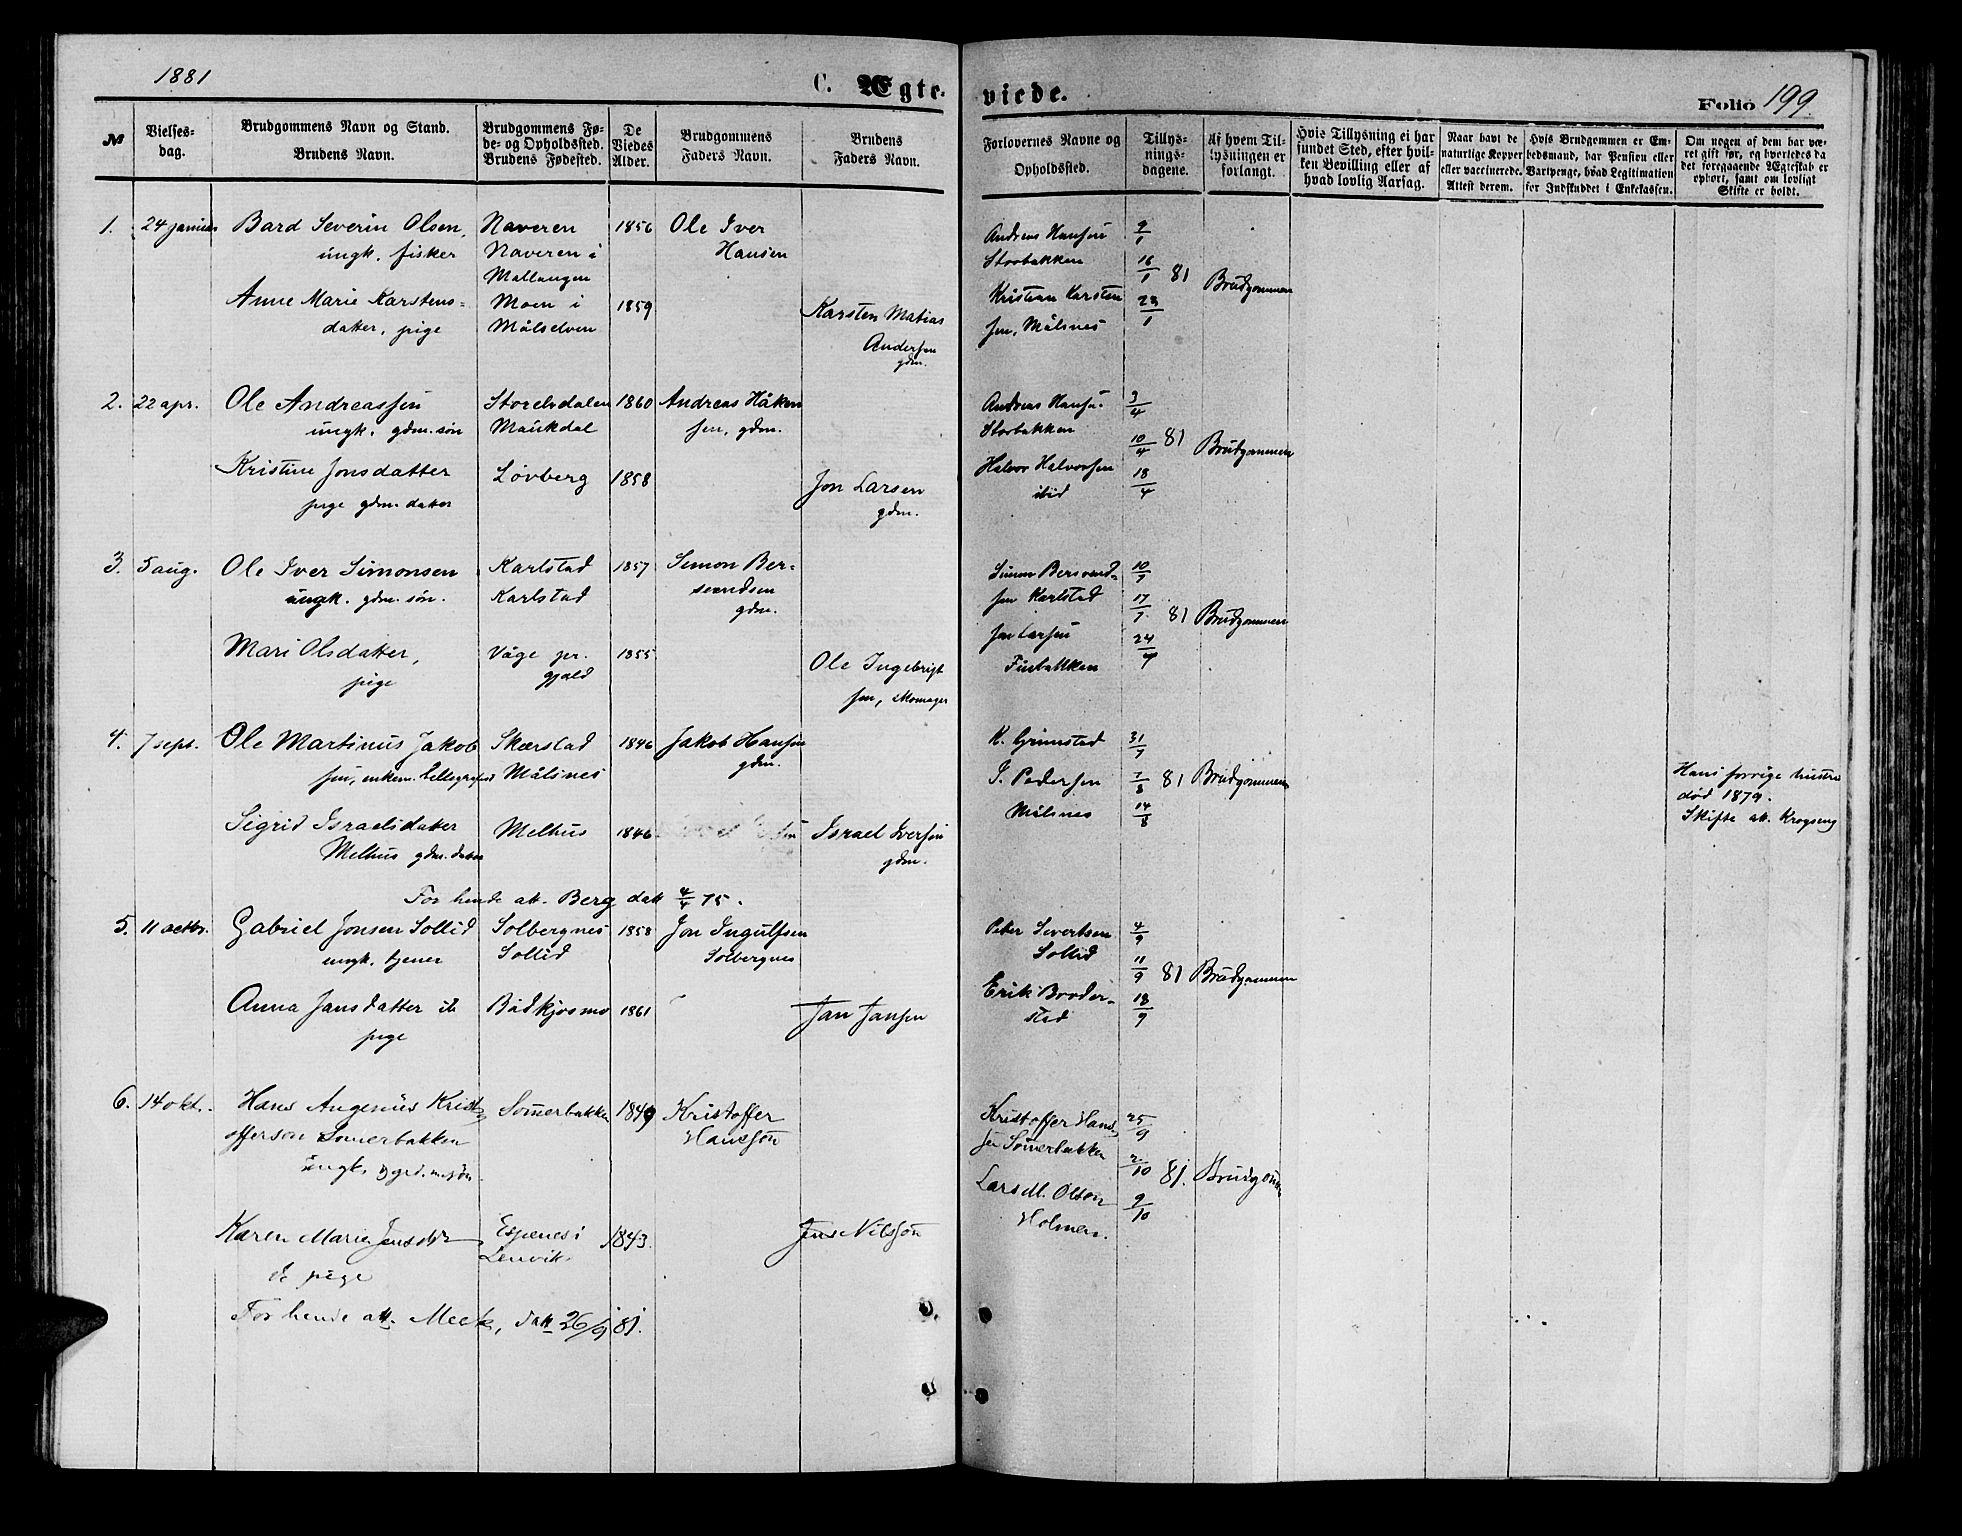 1881
C. Ægte-
viede.
Folio 199.
№
Vielses-
dag.
Brudgommens Navn og Stand.
Brudens Navn.
Brudgommens Fø-
de- og Opholdsted.
Brudens Fødested.
De
Viedes
Alder.
Brudgommens
Faders Navn.
Brudens
Faders Navn.
Forlovernes Navne og
Opholdsted.
Tillys-
nings-
dagene.
Af hvem Til-
lysningen er
forlangt.
Hvis Tillysning ei har
fundet Sted, efter hvil-
ken Bevilling eller af
hvad lovlig Aarsag.
Naar havt de
naturlige Kopper
eller vaccinerede.
Attest derom.
Hvis Brudgommen er Em-
bedsmand, har Pension eller
Vartpenge, hvad Legitimation
for Indskuddet i Enkekassen.
Om nogen af dem har væ-
ret gift før, og hvorledes da
det foregaaende Ægteskab er
ophørt, samt om lovligt
Skifte er holdt.
1. 24 januar Bard Severin Olsen, Naveren 1856 Ole Iver
ungk. fisker Naveren i Hansen
Mallangen
Anne Marie Karstens- Moen i 1859 Karsten Matias
datter, pige Målselven Andersen
gdm.
Andreas Hansen 9/1
Storbakken 16/1 81 Brudgommen
Kristian Karsten 23/1
sen, Målsnes
2. 22 apr. Ole Andreassen 1860 Andreas Håken
ungk. gdm. søn Maukdal sen, gdm.
Kristine Jonsdatter Løvberg 1858 Jon Larsen
pige gdm. datter gdm.
Andreas Hansen 3/4
Storbakken 10/4 81 Brudgommen
Halvor Halvorsen 18/4
ibid
3. 5 aug. Ole Iver Simonsen Karlstad 1857 Simon Ber-
ungk. gdm. søn. Karlstad svendsen
gdm.
Mari Olsdatter, Våge pr. 1855 Ole Ingebrigt
pige gjæld sen, skomager
Simon Bersvend- 10/7
sen Karlstad 17/7 81 Brudgommen
Jon Larsen 24/7
4. 7 sept. Ole Martinus Jakob Skærstad 1846 Jakob Hansen
sen, enkem. Målsnes gdm.
Sigrid Israelsdatter Melhus 1846 Israel Iversen
Melhus gdm. datter gdm.
For hende att. Berg datt 4/4 75.
K. Grimstad 31/7
I. Pedersen 7/8 81 Brudgommen
Målsnes 14/8
Hans forrige hustru
død 1879.
Skifte att.
5. 11 octbr. Gabriel Jonsen Sollid Solbergnes 1858 Jon Ingulfsen
ungk. tjener Sollid Solbergnes
Anna Jansdatter ib Badkjosmo 1861 Jan Jansen
pige
Peter Sivertsen 4/9
Sollid 11/9 81 Brudgommen
Erik Border- 18/9
stad
6. 14 okt. Hans Angenius Krist- Somerbakken 1849 Kristoffer
offersøn Somerbakken Hanssøn
ungk. grd.m.søn.
Karen Marie Jensdtr Espenes i 1843. Jens Nilssøn
pige Lenvik
For hende att. Meek, datt 26/9 81.
Kristoffer Hans- 25/9
søn Somerbakken 2/10 81. Brudgommen
Lars M. Olsøn 9/10
Holmen.